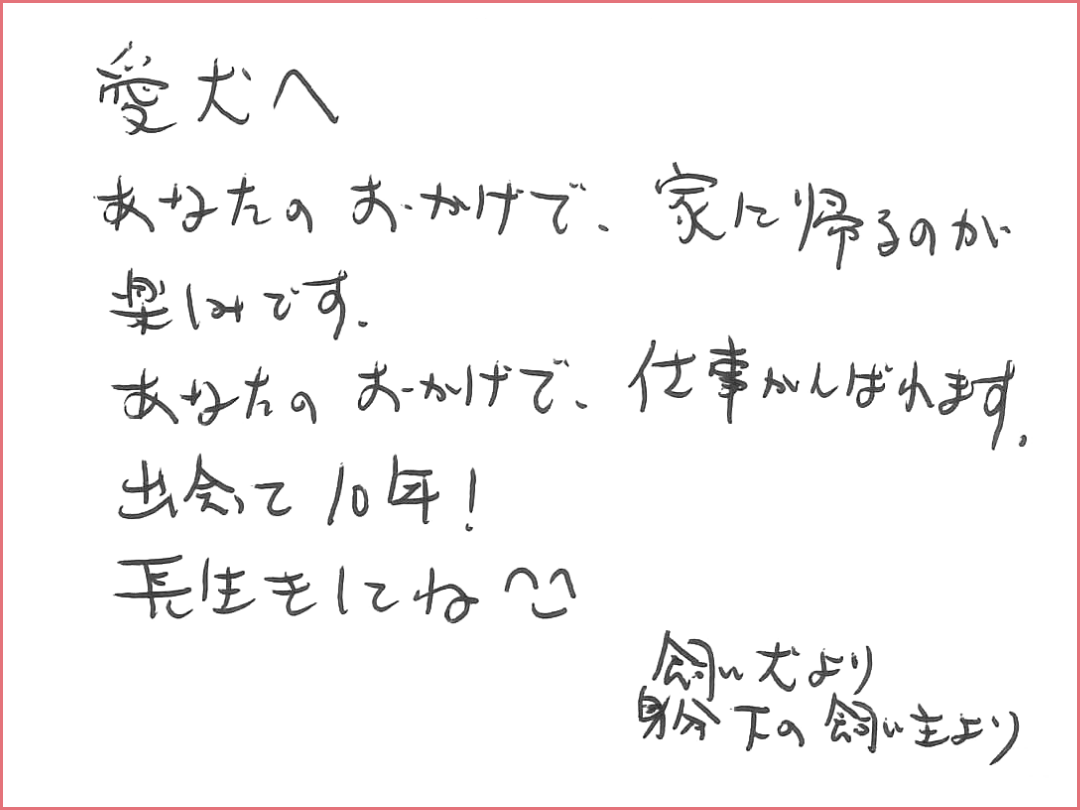 愛犬へ
あなたのおかげで、家に帰るのが
楽しみです。
あなたのおかげで、仕事がんばれます。
出会って10年!
長生きしてね ^^
飼い犬より
身分下の飼い主より